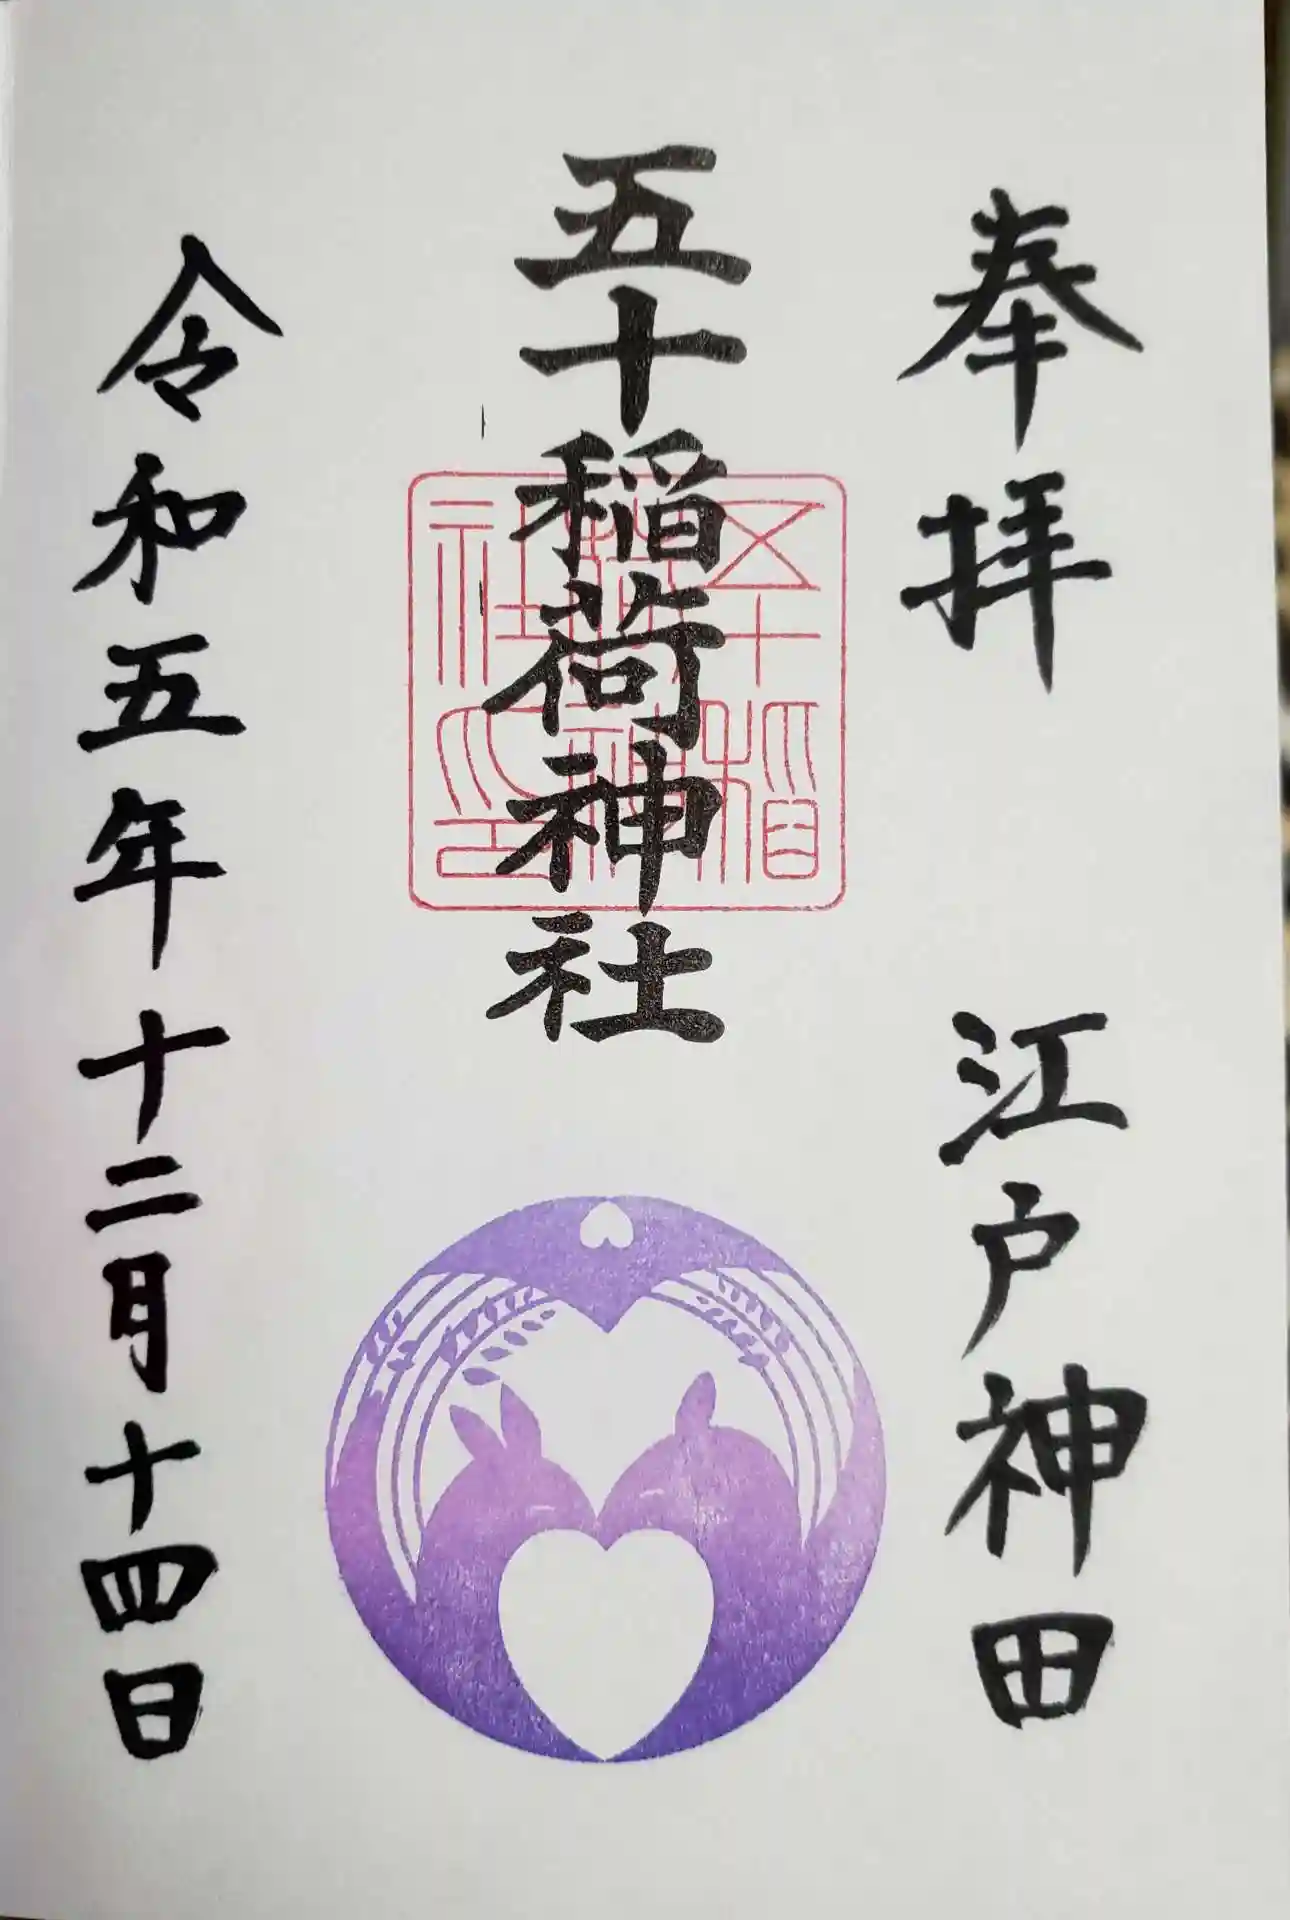 奉拝 江戸神田
五十稲荷神社
五十稲荷神社印
令和五年十二月十四日